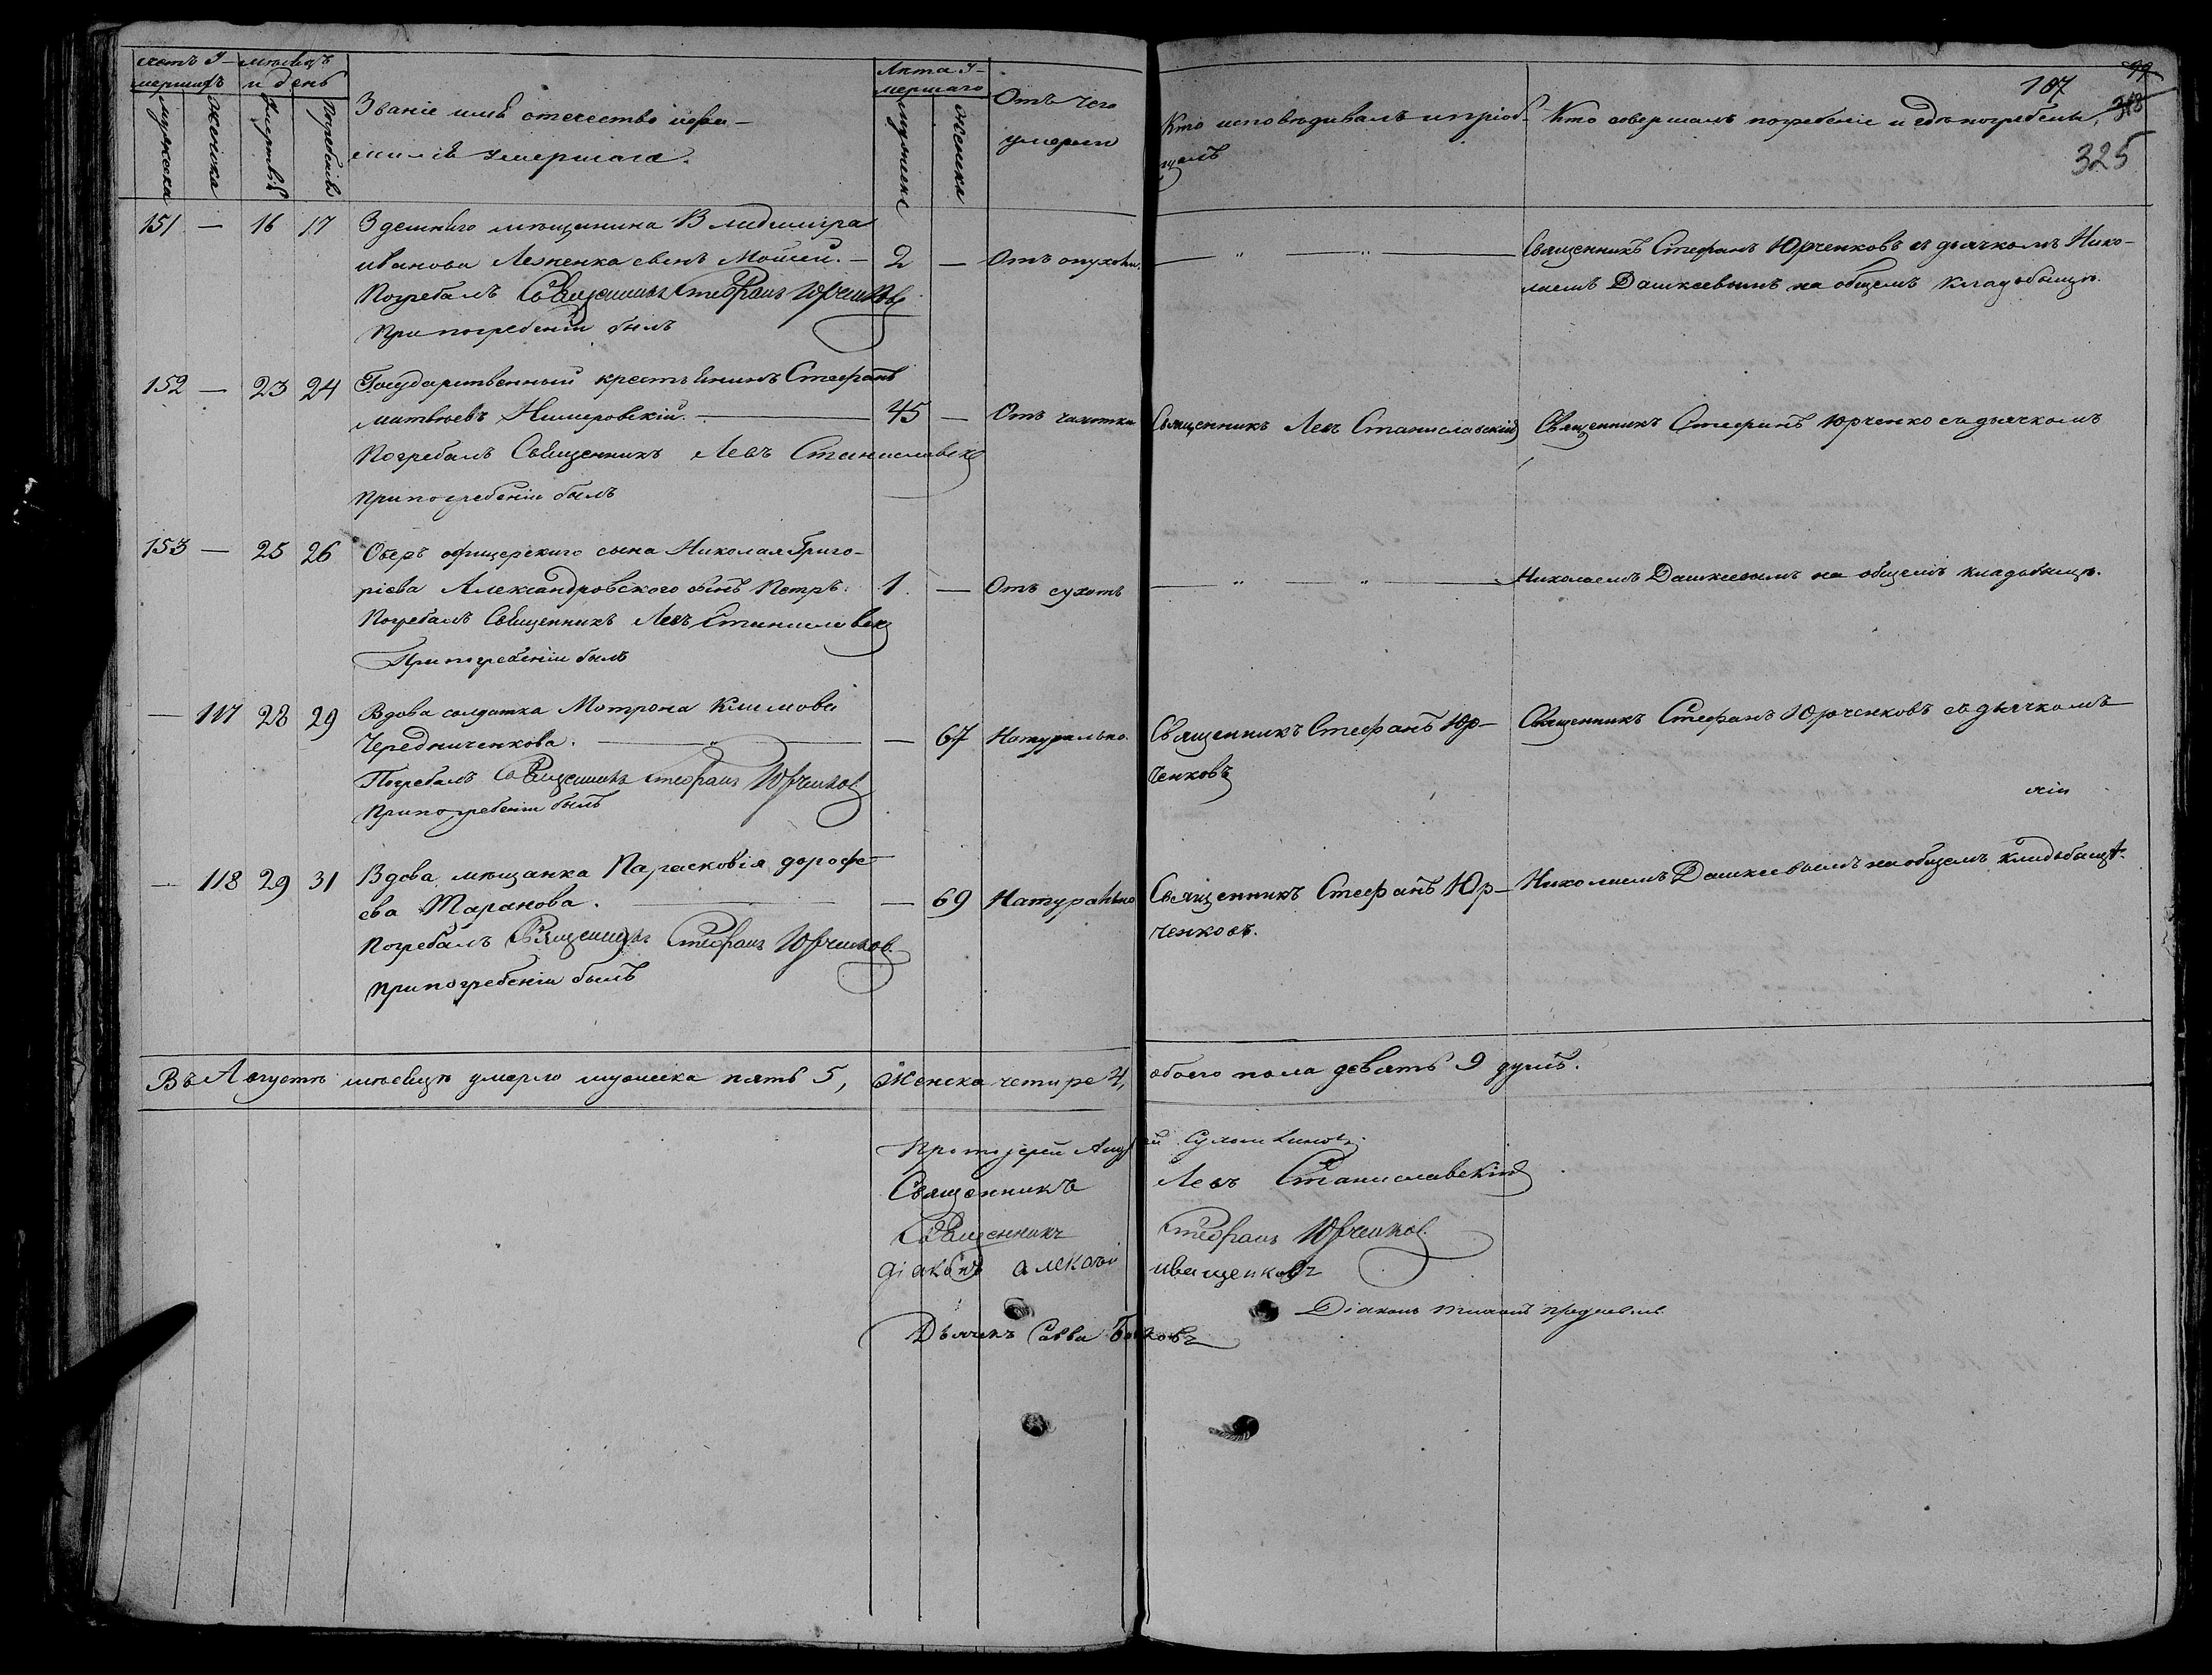 Счетъ У-
мершихъ
Мѣсяцъ
и день
Мужеска
Женска
Смерти
Погребенія
Званіе имя отечество и фа-
милія умершаго.
Лѣта У-
мершаго
Мужеска
Женска
Отъ чего
умерли
Кто исповѣдивалъ и пріоб-
щалъ
Кто совершалъ погребеніе и гдѣ погребены
107
99
318
325
151 — 16 17 Здешнего мѣщанина Владимира
Иванова сынъ Моисей. — 2 — Отъ опухоли. — „ — „ — Священникъ Стефанъ Юрченковъ съ дьячкомъ Нико-
лаемъ Дашкеевымъ на общемъ кладбищѣ.
Погребалъ Священникъ Стефанъ Юрченковъ
При погребеніи былъ
152 — 23 24 Государственный крестьянинъ Стефанъ
Матвѣевъ Нимеровскій. — 45 — Отъ чахотки Священникъ Левъ Станиславскій Священникъ Стефанъ Юрченко съ дьячкомъ
Погребалъ Священникъ Левъ Станиславскій
При погребеніи былъ
153 — 25 26 Оберъ офицерского сына Николая Григо-
ріева Александровского сынъ Петръ. 1. — Отъ сухотъ — „ — „ — Николаемъ Дашкеевымъ на общемъ кладбищѣ.
Погребалъ Священникъ Левъ Станиславскій
При погребеніи былъ
— 117 28 29 Вдова солдатка Мотрона Климова
Чередниченкова. — „ — — 67 Натурально. Священникъ Стефанъ Юр-
ченковъ
Священникъ Стефанъ Юрченковъ съ дьячкомъ
Погребалъ Священникъ Стефанъ Юрченковъ
При погребеніи былъ
— 118 29 31 Вдова мѣщанка Парасковія Дорофе-
ева Таранова. — — 69 Натурально Священникъ Стефанъ Юр-
ченковъ.
Николаемъ Дашкеевымъ на общемъ кладбищѣ.
Погребалъ Священникъ Стефанъ Юрченковъ
При погребеніи былъ
Въ Августѣ мѣсяцѣ умерло мужеска пять 5, Женска четыре 4, обоего пола девять 9 душъ.
Протоіерей
Священникъ Левъ Станиславскій
Священникъ Стефанъ Юрченковъ
Діаконъ Алексѣй Иващенковъ
Діаконъ
Дьячекъ Савва